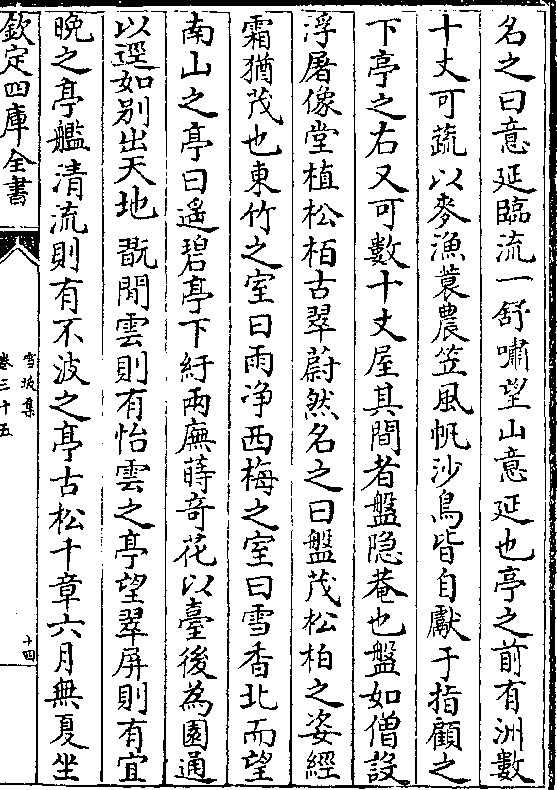 名之曰意延臨流一舒嘯望山意延也亭之前有洲數
十丈可蔬以麥漁蓑農笠風帆沙鳥皆自獻于指顧之
下亭之右又可數十丈屋其間者盤隐菴也盤如僧設
浮屠像堂植松栢古翠蔚然名之曰盤茂松柏之姿經
霜猶茂也東竹之室曰雨净西梅之室曰雪香北而望
南山之亭曰遥碧亭下紆兩廡蒔奇花以臺後為園通
以逕如别出天地翫閒雲則有怡雲之亭望翠屏則有宜
晩之亭艦清流則有不波之亭古松十章六月無夏坐
欽定四庫全書
雪坡集
卷三十五
十四